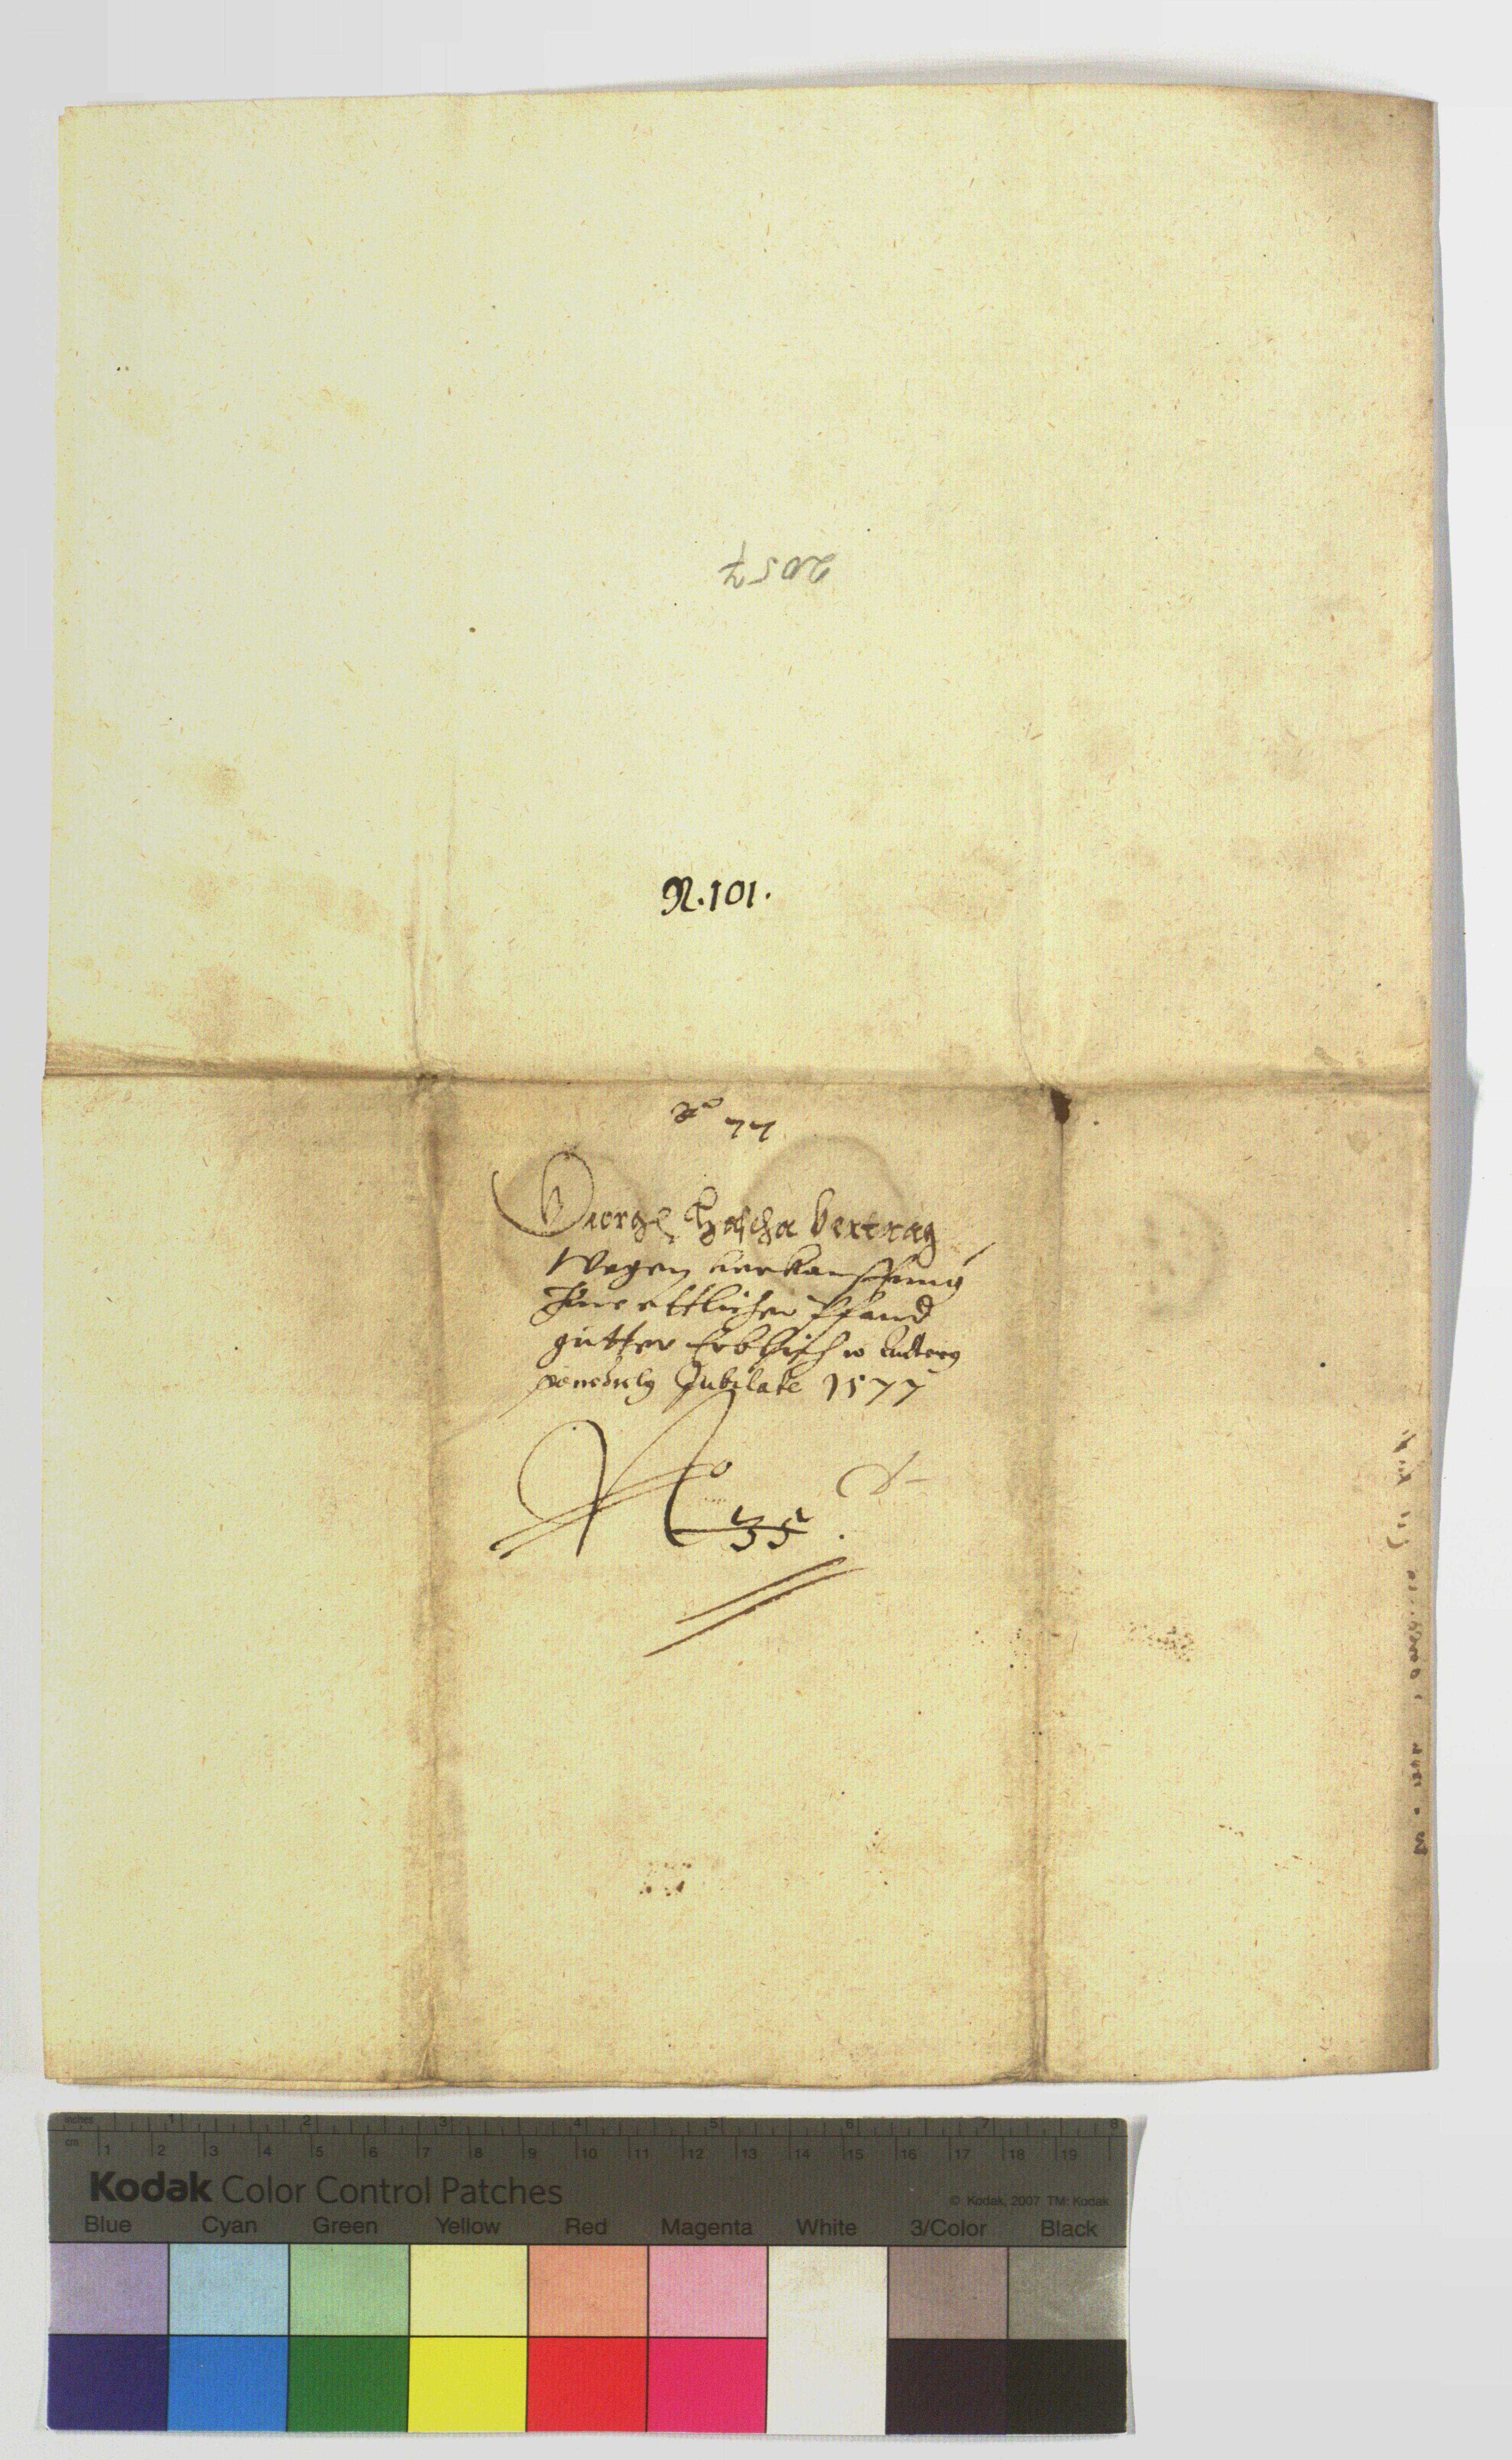 2057
N. 101.
Ao 77
George Vertrag
Wegen verkauffung
ettlicher Pfand
gütter Erblich
Jubilate 1577
No 35.
inches 1 2 3 4 5 6 7 8
cm 1 2 3 4 5 6 7 8 9 10 11 12 13 14 15 16 17 18 19
Kodak Color Control Patches
© Kodak, 2007 TM: Kodak
Blue Cyan Green Yellow Red Magenta White 3/Color Black